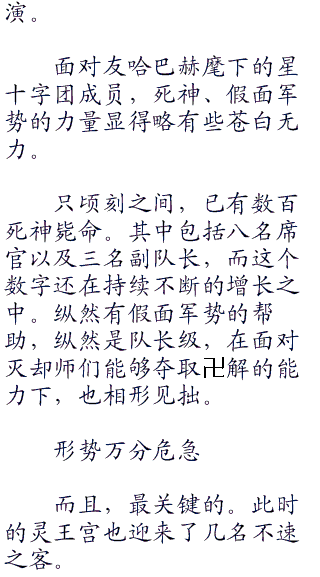 演。
面对友哈巴赫麾下的星
十字团成员，死神、假面军
势的力量显得略有些苍白无
力。
只顷刻之间，已有数百
死神毙命。其中包括八名席
官以及三名副队长，而这个
数字还在持续不断的增长之
中。纵然有假面军势的帮
助，纵然是队长级，在面对
灭却师们能够夺取卍解的能
力下，也相形见拙。
形势万分危急
而且，最关键的。此时
的灵王宫也迎来了几名不速
之客。